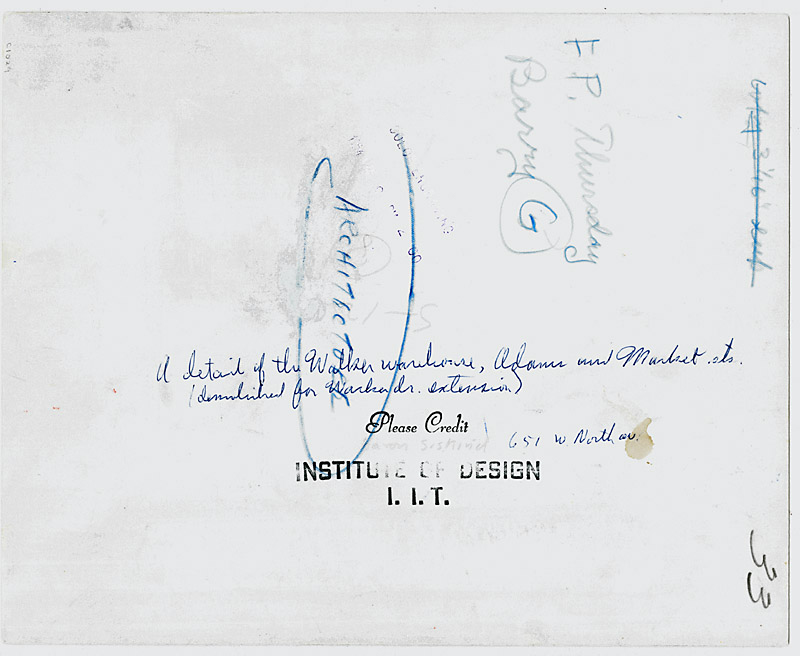 F P. Thursday
Barry G
ARCHITECTURE
A detail of the Walker warehouse, Adams and Market sts.
(demolished for Wacker dr. extension)
Please Credit
Aaron Siskind
651 W North av.
INSTITUTE OF DESIGN
I. I. T.
33